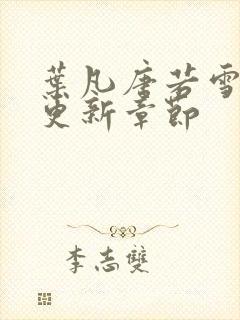 葉凡唐若雪
更新章節
李志雙